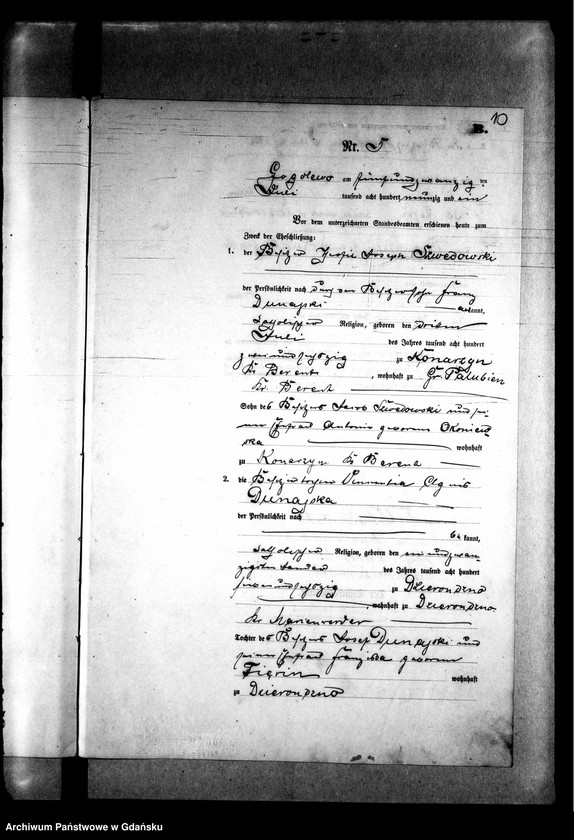 10
B.
Nr. 5
Gogolewo am fünfundzwanzig ten
Juli tausend acht hundert neunzig und ein
Vor dem unterzeichneten Standesbeamten erschienen heute zum
Zweck der Eheschließung:
1. der Besitzer Joseph Szwedowski
der Persönlichkeit nach durch den Besitzersohn Franz
Dunajski kannt,
katholischer Religion, geboren den dritten
Juli des Jahres tausend acht hundert
zwei und sechszig zu Konarzyn
Kr. Berent, wohnhaft zu Gr. Palubien
Kr. Berent
Sohn des Besitzers Szwedowski und sei-
ner Ehefrau Antonie geborene Okoniew-
ska wohnhaft
zu Konarzyn Kr. Berent
2. die Besitzertochter Agnes
Dunajska
der Persönlichkeit nach
be kannt,
katholischer Religion, geboren den ein und zwan-
zigsten des Jahres tausend acht hundert
und sechszig zu Dzierondzno
, wohnhaft zu Dzierondzno
Kr. Marienwerder
Tochter des Besitzers Josef Dunajski und
seiner Ehefrau Franziska geborene
wohnhaft
zu Dzierondzno
Archiwum Państwowe w Gdańsku